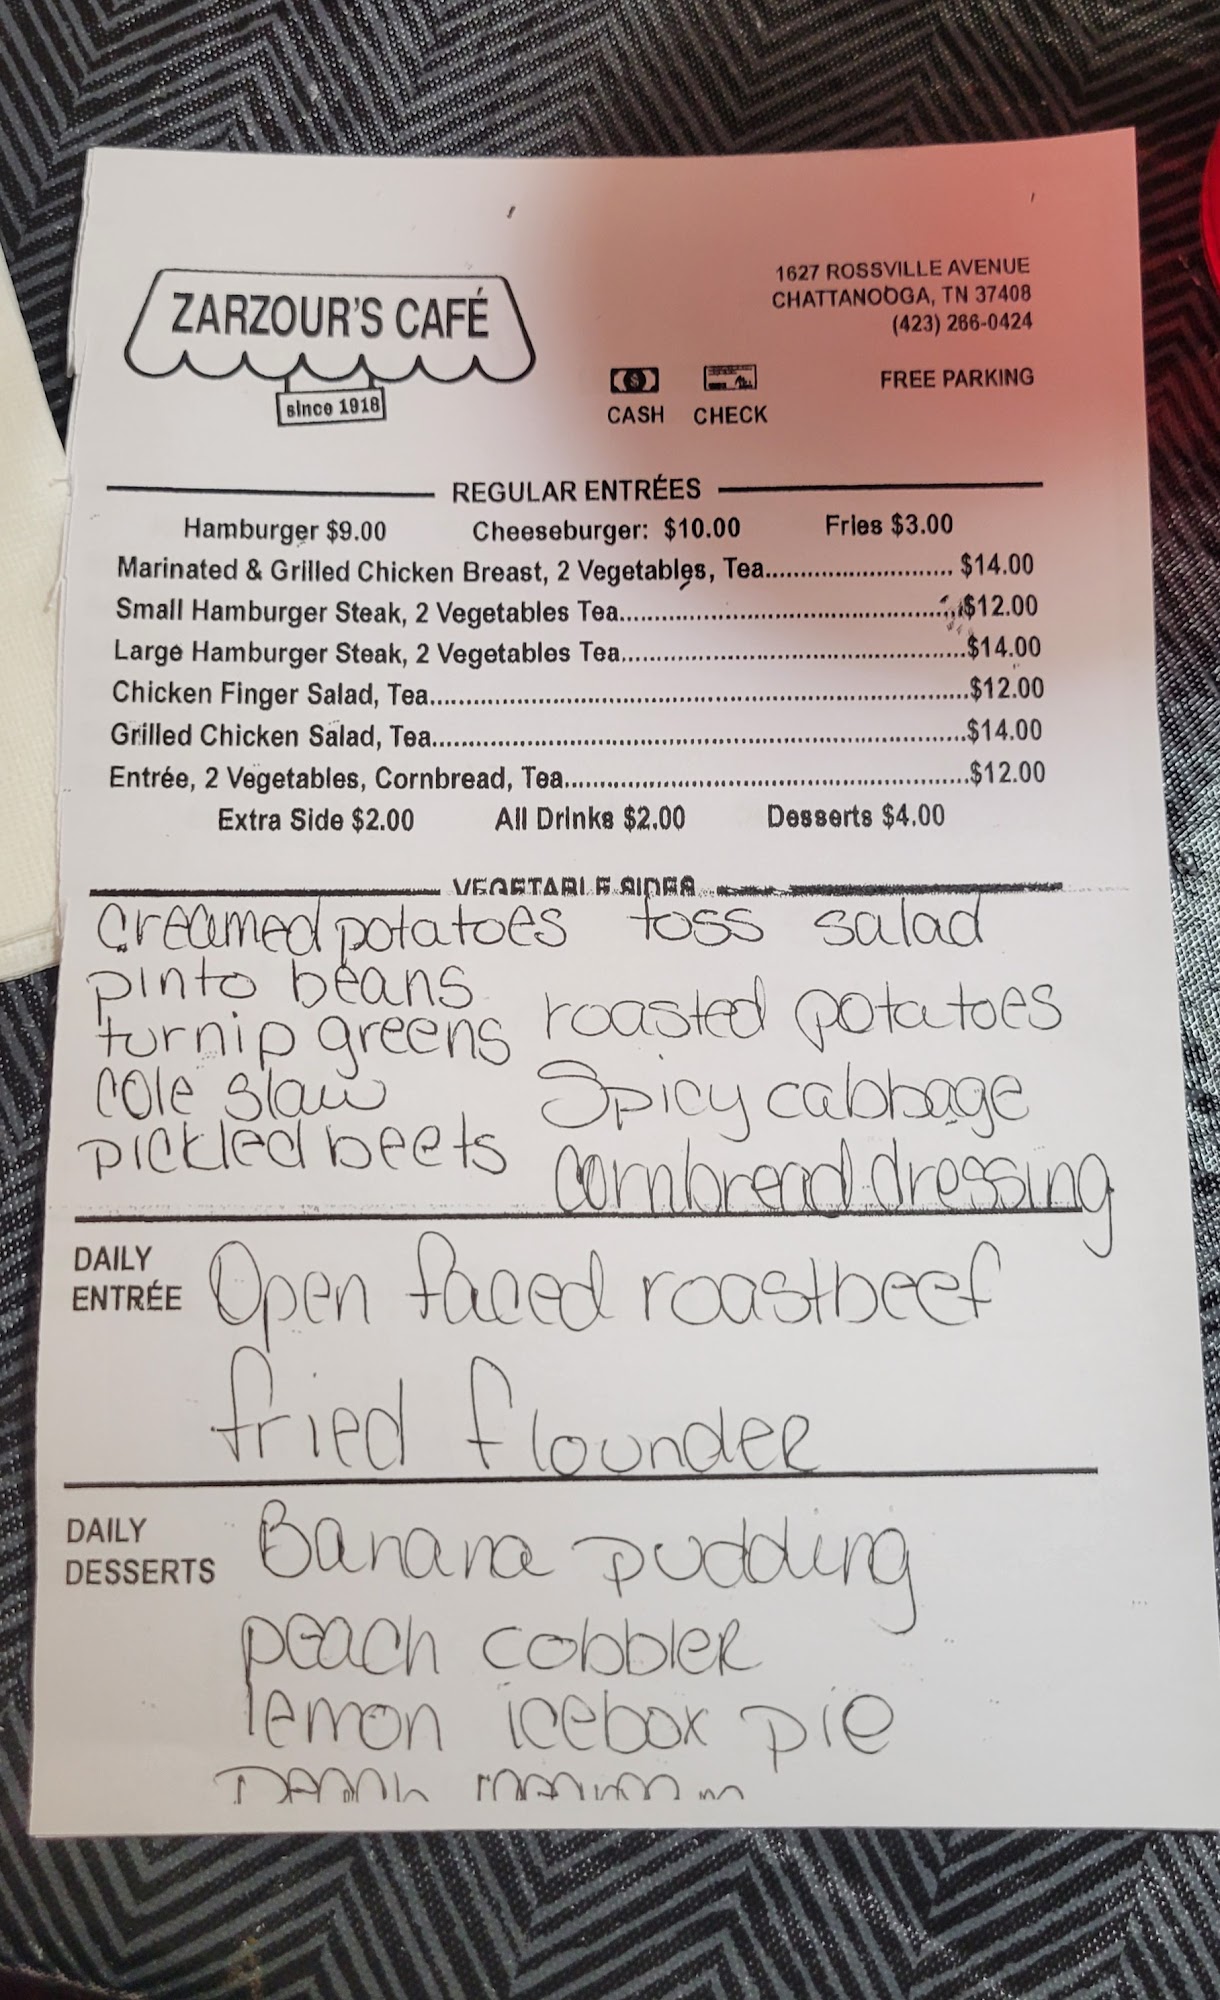 ZARZOUR'S CAFÉ
since 1918
1627 ROSSVILLE AVENUE
CHATTANOOGA, TN 37408
(423) 266-0424
CASH CHECK
FREE PARKING
REGULAR ENTRÉES
Hamburger $9.00 Cheeseburger: $10.00 Fries $3.00
Marinated & Grilled Chicken Breast, 2 Vegetables, Tea............................ $14.00
Small Hamburger Steak, 2 Vegetables Tea..................................................$12.00
Large Hamburger Steak, 2 Vegetables Tea..................................................$14.00
Chicken Finger Salad, Tea..............................................................................$12.00
Grilled Chicken Salad, Tea..............................................................................$14.00
Entrée, 2 Vegetables, Cornbread, Tea...........................................................$12.00
Extra Side $2.00 All Drinks $2.00 Desserts $4.00
VEGETABLE SIDES
creamed potatoes toss salad
pinto beans
turnip greens roasted potatoes
cole slaw Spicy cabbage
pickled beets cornbread dressing
DAILY ENTRÉE
Open faced roastbeef
fried flounder
DAILY DESSERTS
Banana pudding
peach cobbler
lemon icebox pie